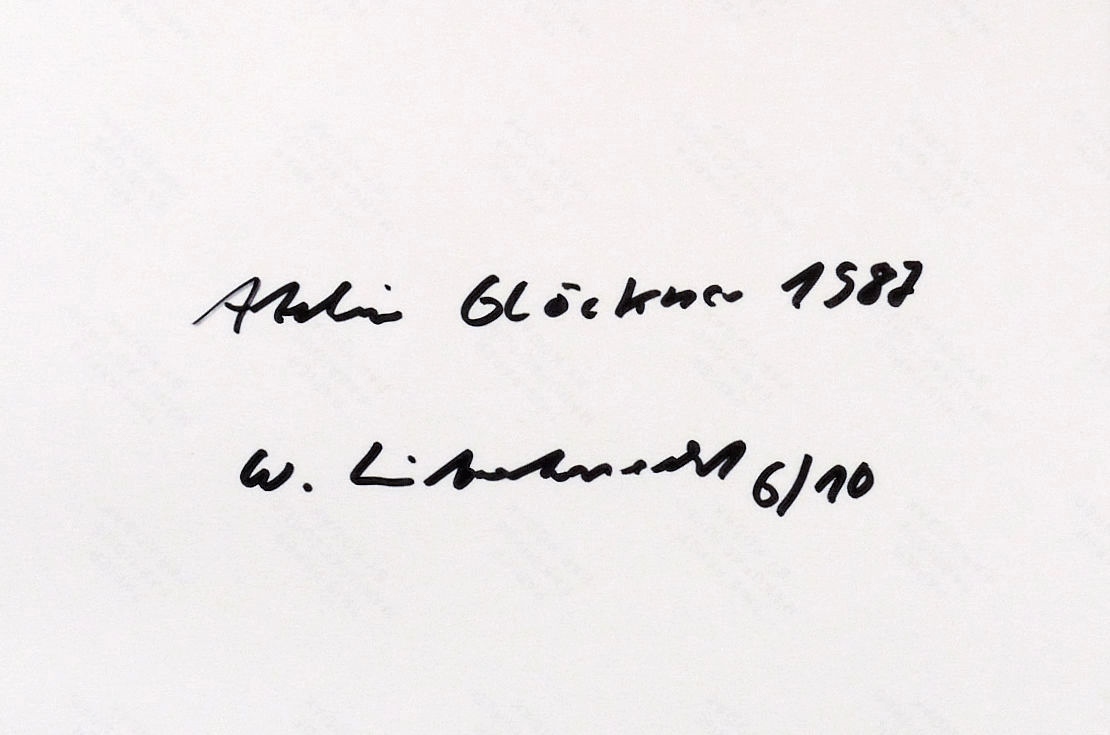 Atelier Glöckner 1987
W. Liebeknecht 6/10